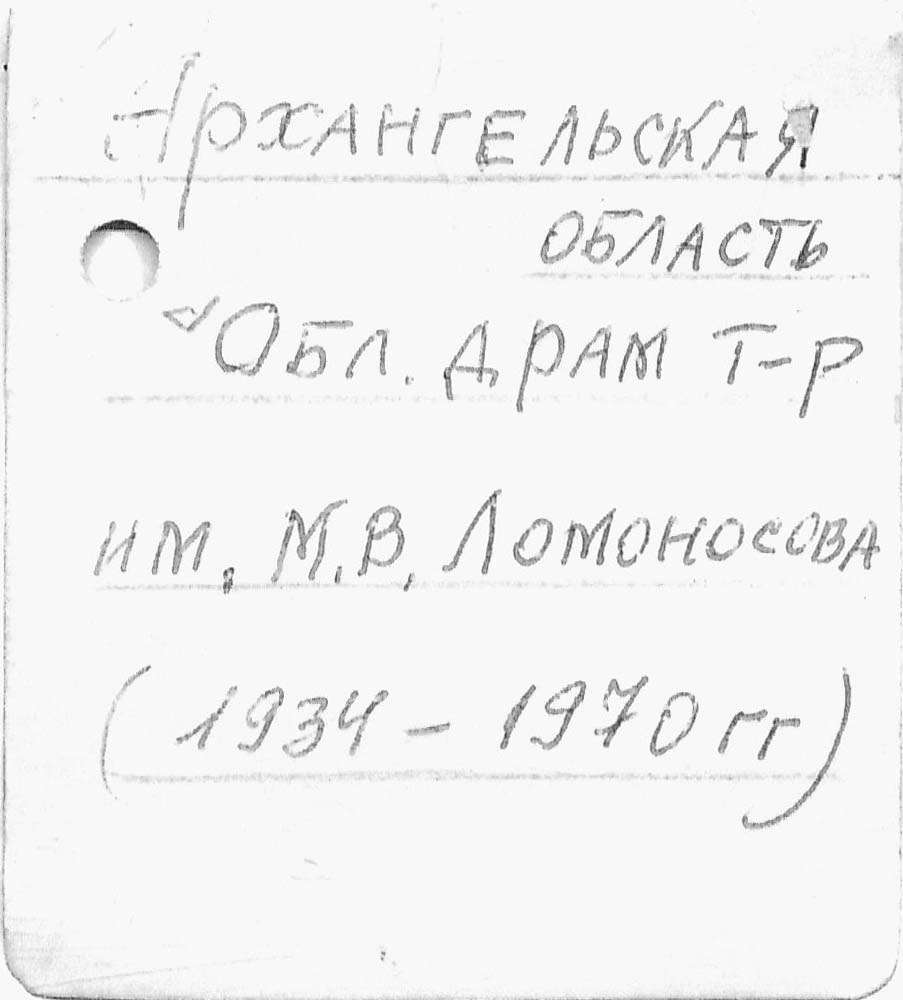 Архангельская
область
Обл. драм т-р
им. М.В. Ломоносова
(1934 - 1970 гг)